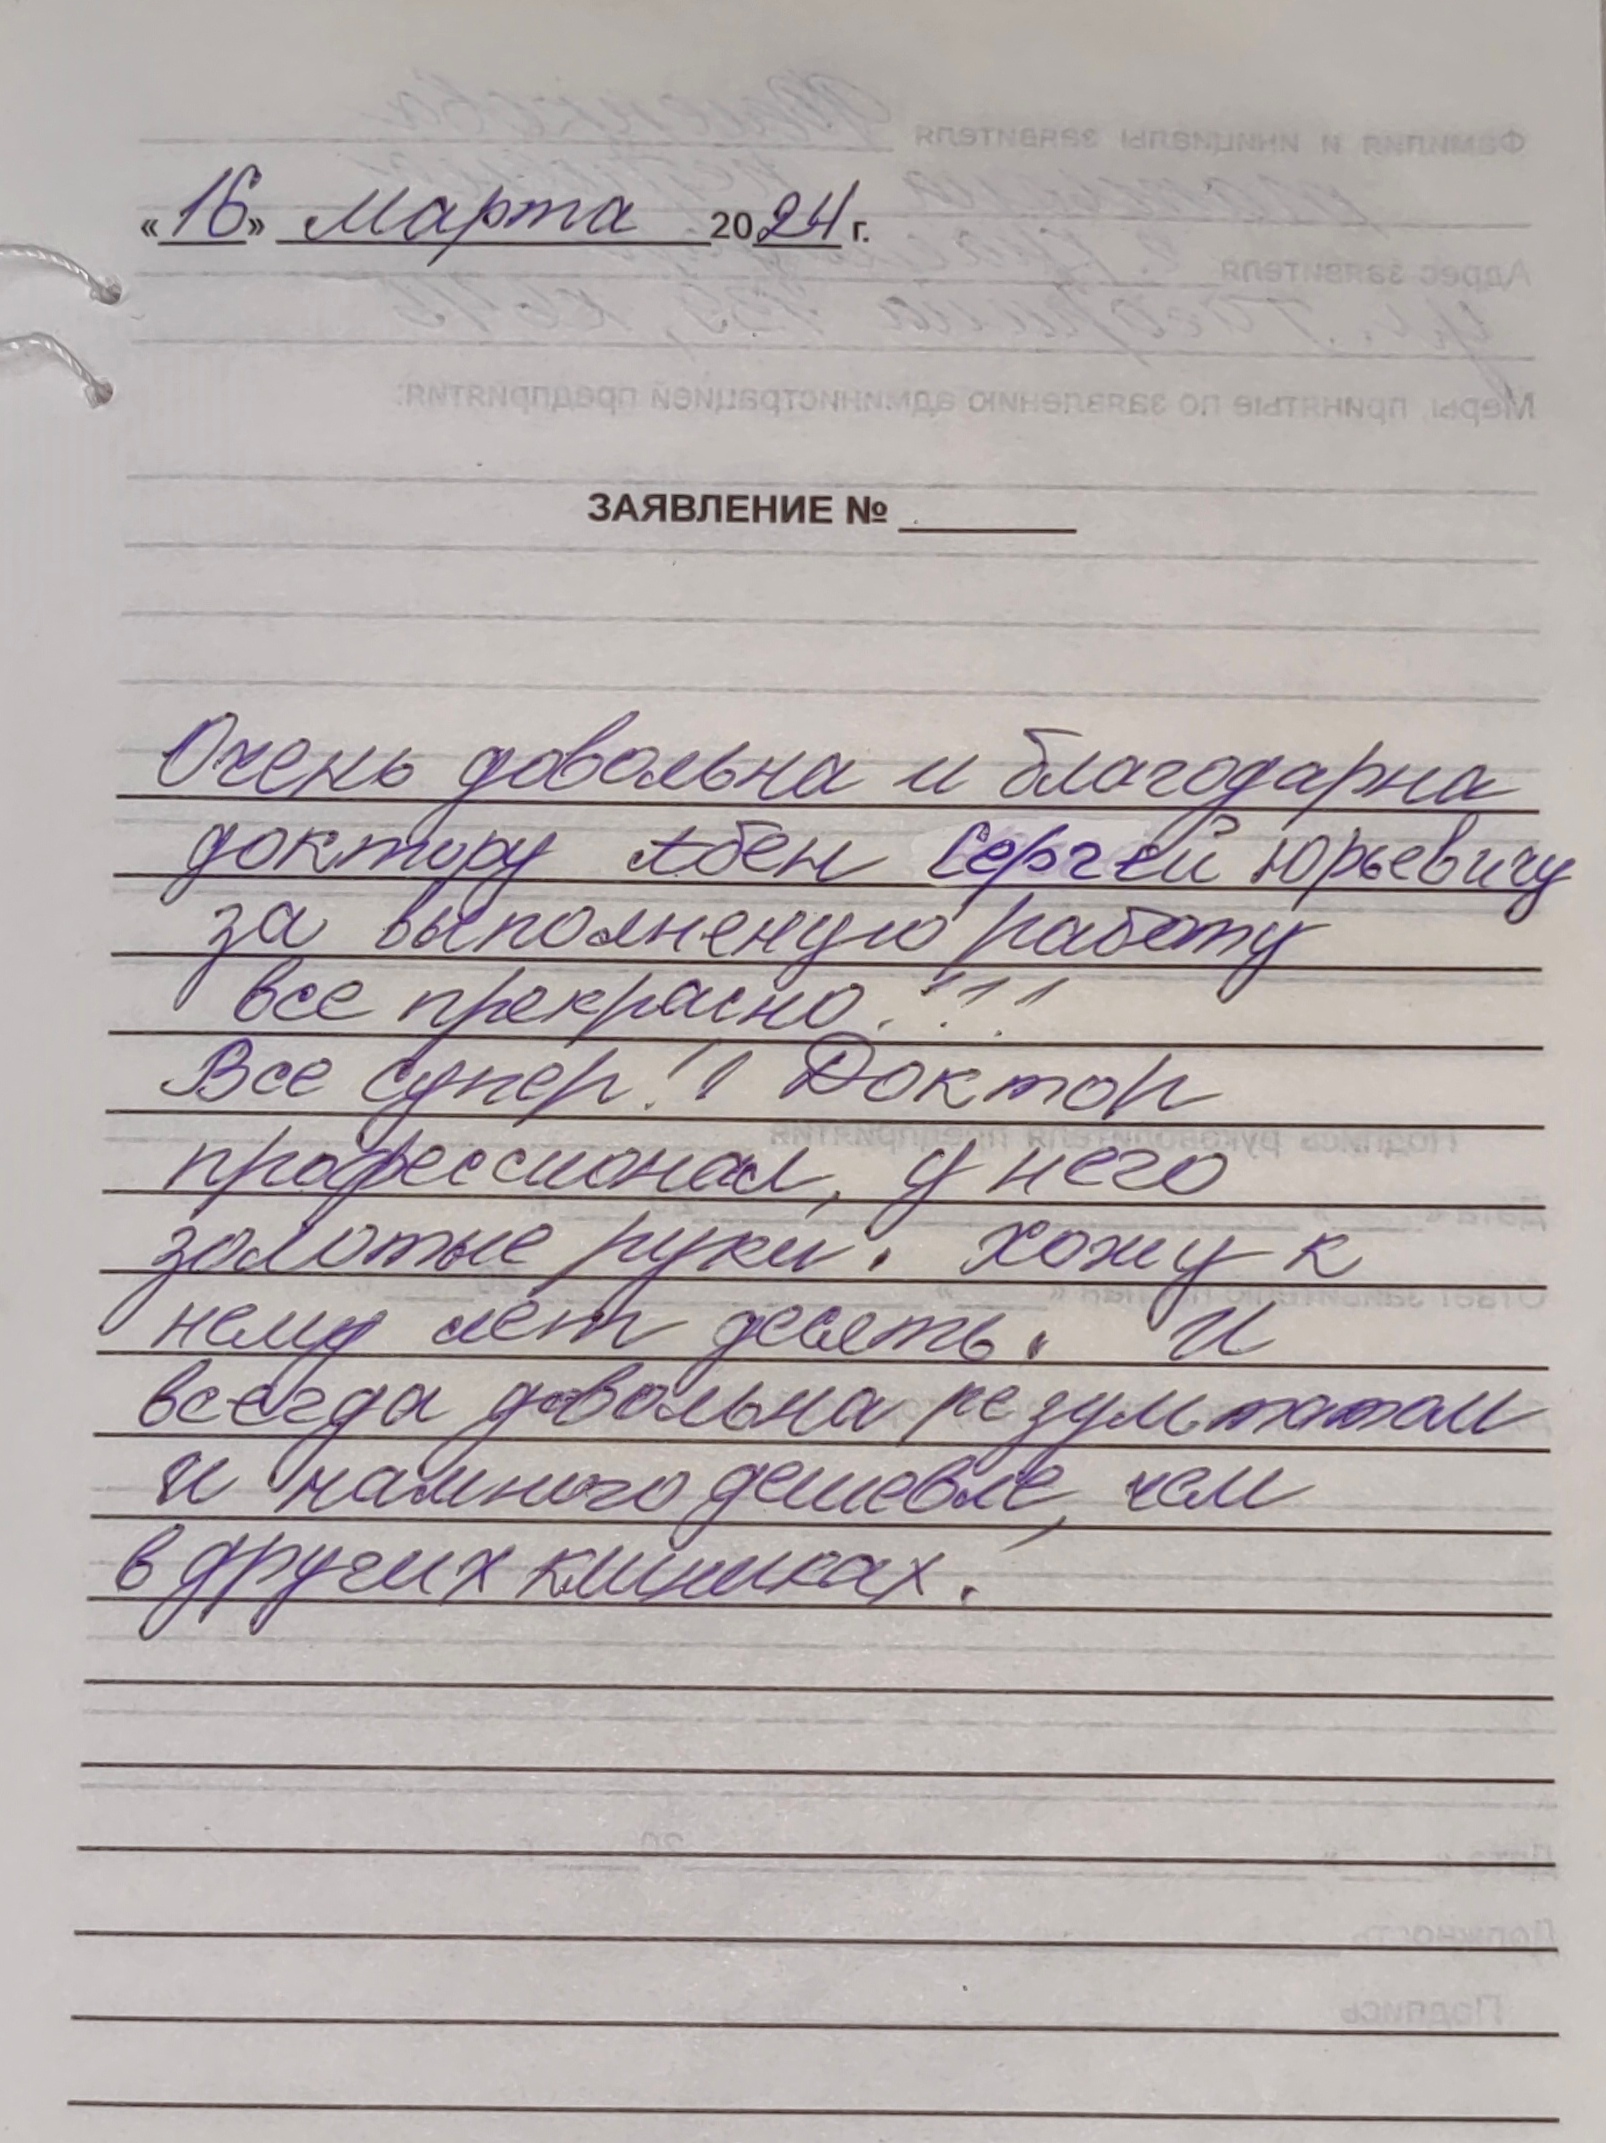 «16» Марта 2024 г.
ЗАЯВЛЕНИЕ №
Очень довольна и благодарна
доктору Абен Сергей Юрьевичу
за выполненую работу
все прекрасно!!!
Все супер!! Доктор
профессионал, у него
золотые руки. Хожу к
нему лет десять. И
всегда довольна резултатом
и намного дешевле, чем
в других клиниках.